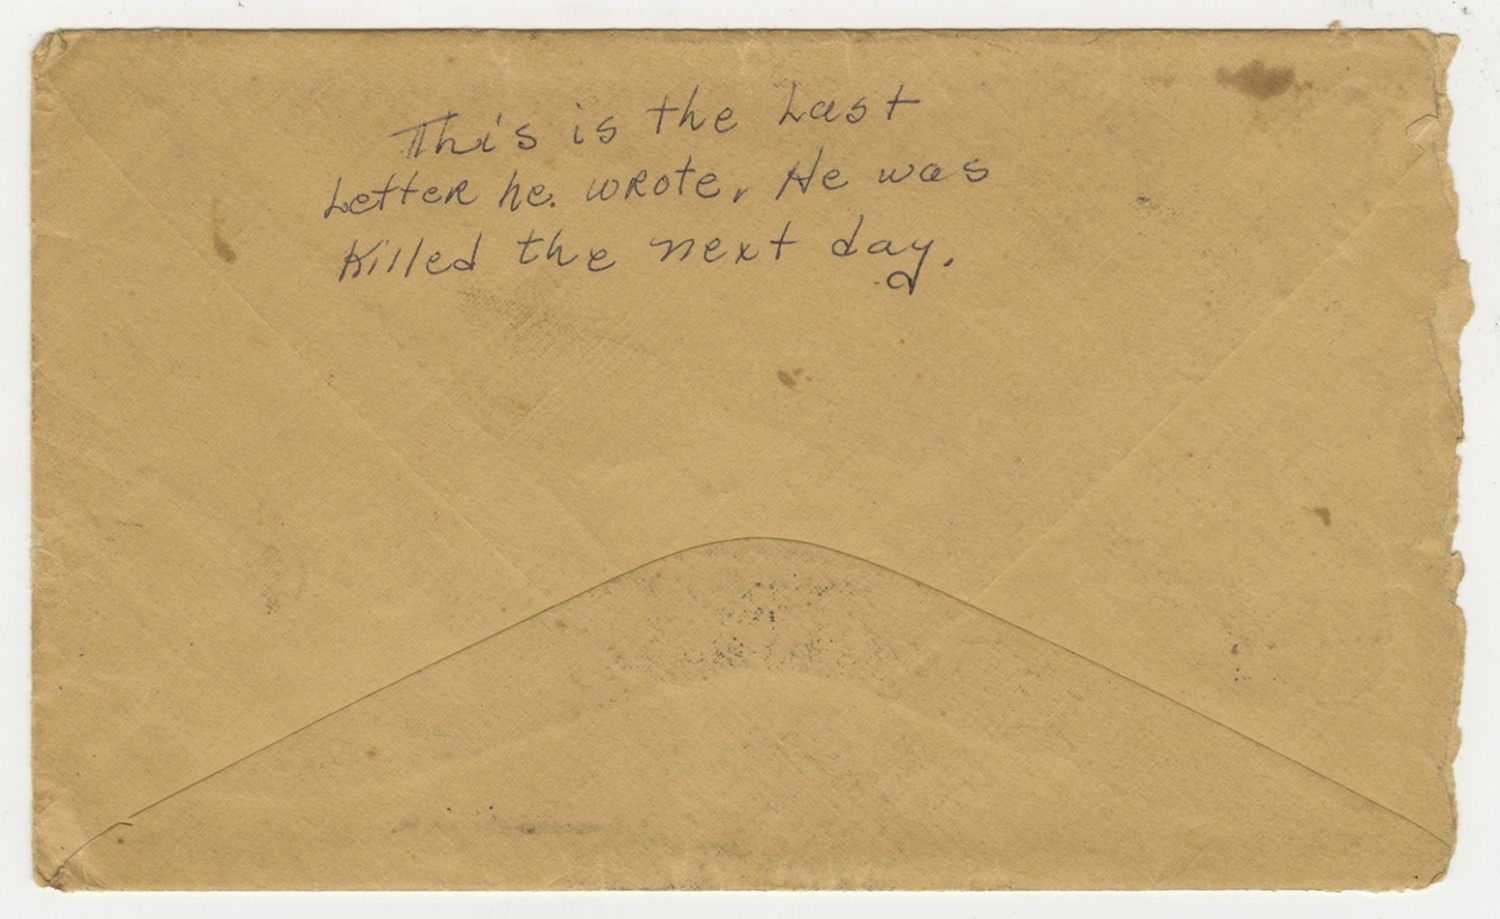 This is the Last
Letter he. wrote. He was
Killed the next day.